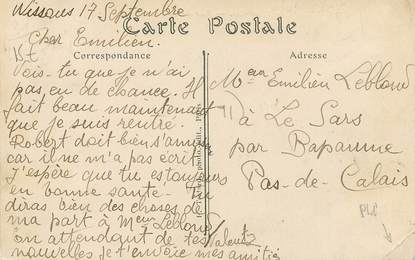 Wissous 17 Septembre
Carte Postale
Cher Emilien.
Correspondance
Vois-tu que je n'ai
pas eu de chance. Il
fait beau maintenant
que je suis rentré.
Robert doit bien s'amuser
car il ne m'a pas écrit
J'espère que tu es toujours
en bonne santé. Tu
diras bien des choses de
ma part à Meur Leblond
en attendant de tes
nouvelles je t'envoie mes amitiés
Adresse
Meur Emilien Leblond
à Le Sars
par Bapaume
Pas-de-Calais